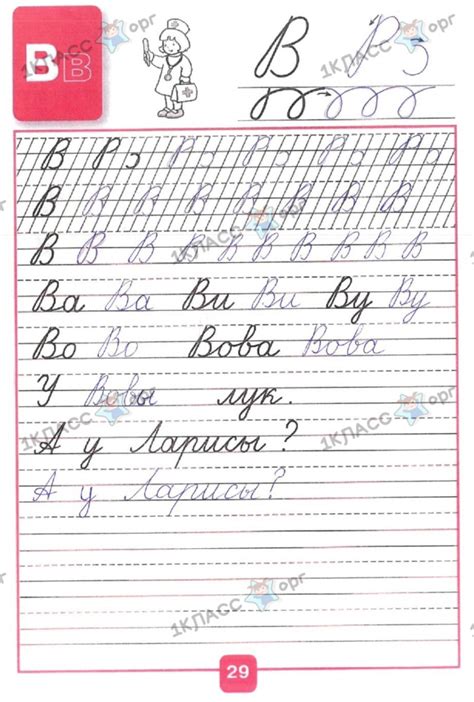 Вв 1КЛАСС орг В Р з 1КЛАСС орг
В Р з Р з Р з Р з Р з
В В В В В В В В
В В В В В В В В В В
Ва Ва Ви Ви Ву Ву
Во Во Вова Вова
У Вовы лук.
А у Ларисы?
А у Ларисы?
1КЛАСС орг
29